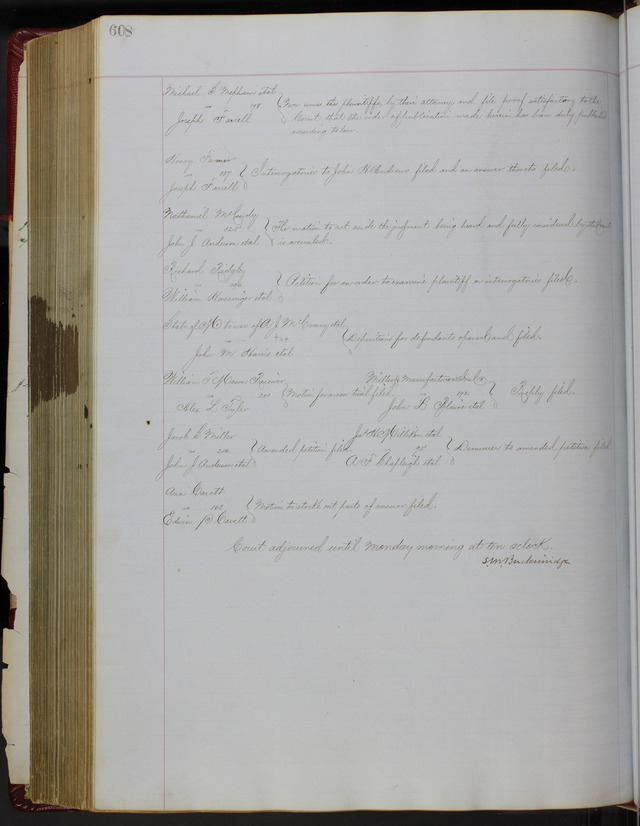 608
Michael S. Mepham et al
vs 198 Now comes the plaintiffs by their attorney and file proof satisfactory to the
Joseph Farrell Court that the order of publication made herein has been duly published
according to law.
Henry
vs 197 Interrogatories to John H Andrews filed and an answer thereto filed.
Joseph Farrell
Nathaniel McCurdy
vs 125 The motion to set aside the judgment being heard and fully considered by the Court
John J. Anderson et al is overruled.
Richard Ridgely
vs Petition for an order to examine plaintiff on interrogatories filed.
William et al
State of Mo to use of A J McCreary et al
vs Depositions for defendants opened and filed.
John M Harris et al
William T Mason Receiver
vs 200 Motion for a new trial filed.
Alex L. Tyler
Manufacturers
vs 192 Reply filed.
John B et al
Jacob E Miller
vs Amended petition filed
John J Anderson et al
et al
vs Demurrer to amended petition filed
A F Shapleigh et al
Ann Cavett
vs 163 Motion to strike out parts of answer filed.
Edwin B Cavett
Court adjourned until Monday morning at ten oclock.
S.M. Breckinridge